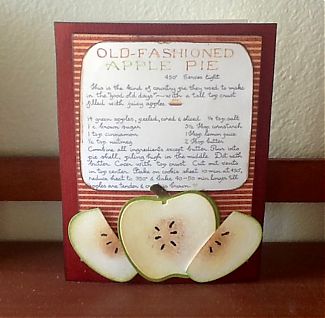 OLD-FASHIONED
APPLE PIE
450° Serves Eight
This is the kind of country pie they used to make
in the "good old days" — with a tall top crust
filled with juicy apples.
14 green apples, peeled, cored & sliced ¼ tsp salt
1 c brown sugar 3½ tbsp cornstarch
1 tsp cinnamon 1 tbsp lemon juice
¼ tsp nutmeg 2 tbsp butter
Combine all ingredients except butter. Pour into
pie shell, piling high in the middle. Dot with
butter. Cover with top crust. Cut out vents
in top center. Place on cookie sheet 10 min at 450°,
reduce heat to 350° & bake 40-50 min longer till
apples are tender & crust is brown.